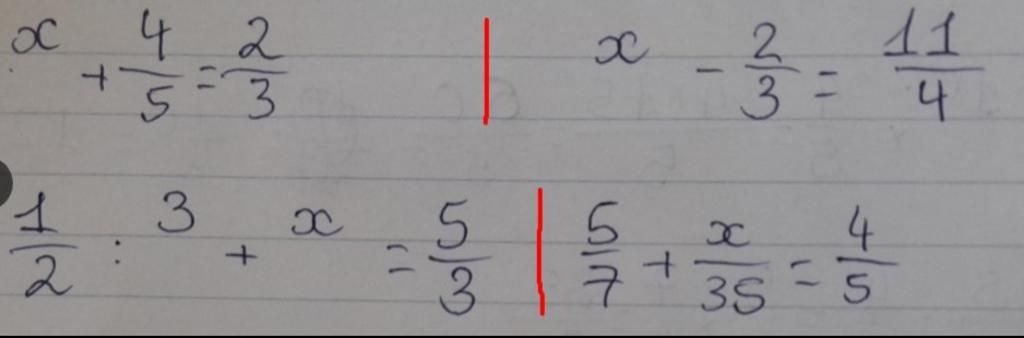 x + 4/5 = 2/3 | x - 2/3 = 11/4
1/2 : 3 + x = 5/3 | 5/7 + x/35 = 4/5